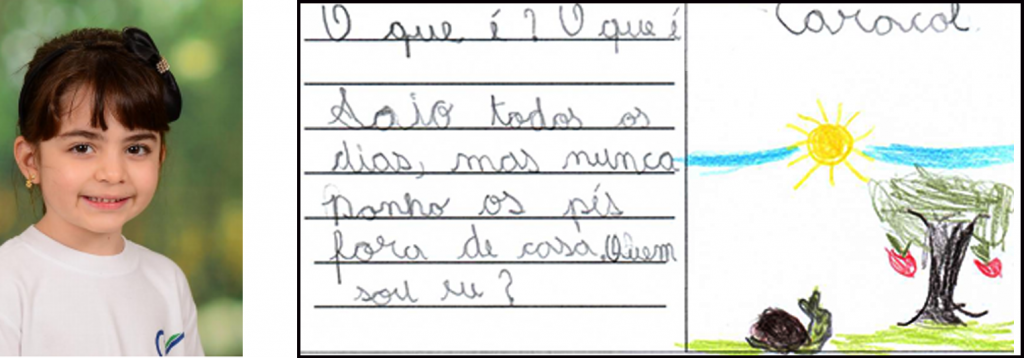 O que é? O que é
Saio todos os
dias, mas nunca
ponho os pés
fora de casa. Quem
sou eu?
Caracol